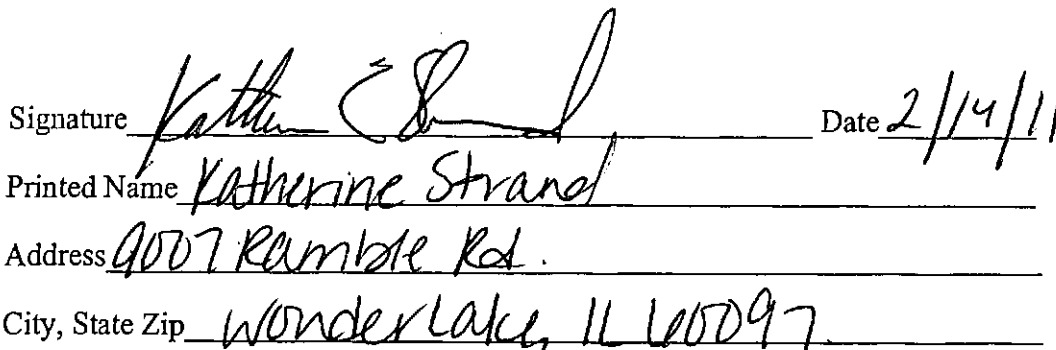 Signature Katherine E Strand Date 2/14/11
Printed Name Katherine Strand
Address 9007 Ramble Rd.
City, State Zip Wonder Lake, IL 60097